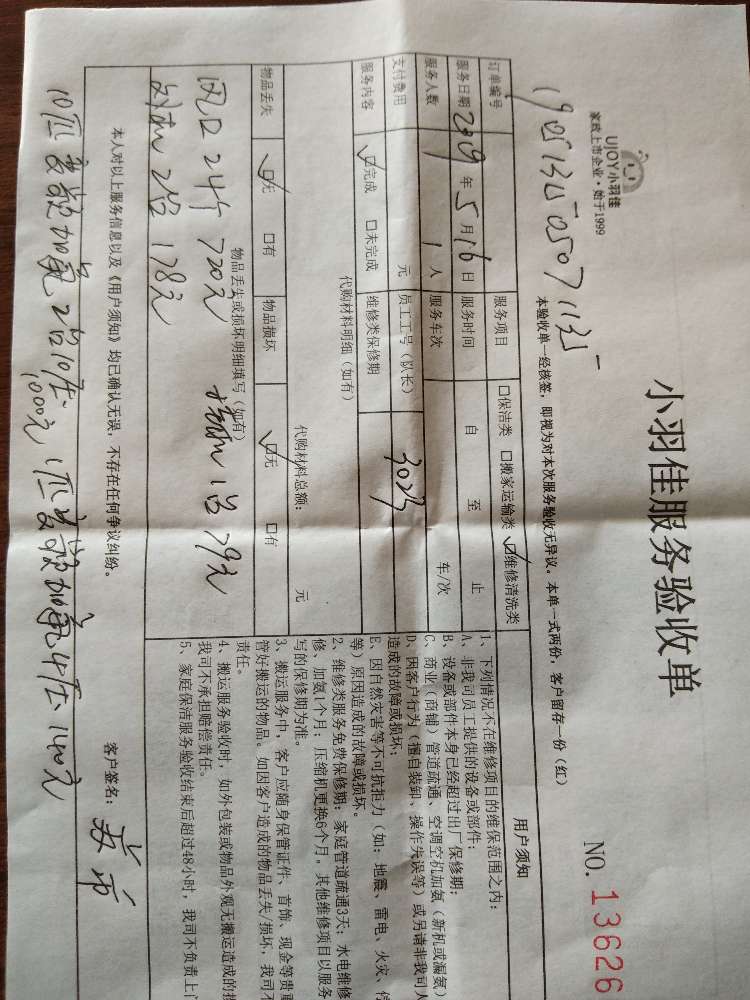 UJOY小羽佳
家政上市企业·始于1999
小羽佳服务验收单
NO. 13626
本验收单一经核签，即视为对本次服务验收无异议。本单一式两份，客户留存一份（红）
订单编号
服务项目 □保洁类 □搬家运输类 ☑维修清洗类
服务日期 2019年5月16日 服务时间 自 至 止
服务人数 1人 服务车次 车/次
支付费用 元 员工工号（队长） 3023
服务内容 ☑完成 □未完成 维修类保修期
代购材料明细（如有）
代购材料总额： 元
物品丢失 ☑无 □有 物品损坏 ☑无 □有
物品丢失或损坏明细填写（如有）
风口 24个 720元
2台 178元
1台 79元
本人对以上服务信息以及《用户须知》均已确认无误，不存在任何争议纠纷。
客户签名：
10匹 加氟 2台10压 1000元 1匹 加氟4压 140元
用户须知
1、下列情况不在维修项目的维保范围之内：
A、非我司员工提供的设备或部件；
B、设备或部件本身已经超过出厂保修期；
C、商业（商铺）管道疏通、空调空机加氨（新机或漏氨）
D、因客户行为（擅自装卸、操作失误等）或另请非我司人
造成的故障或损坏；
E、因自然灾害等不可抗拒力（如：地震、雷电、火灾、停
等）原因造成的故障或损坏。
2、维修类服务免费保修期：家庭管道疏通3天；水电维修
修、加氨1个月；压缩机更换6个月。其他维修项目以服务
写的保修期为准。
3、搬运服务中，客户应随身保管证件、首饰、现金等贵重
管好搬运的物品。如因客户造成的物品丢失/损坏，我司不
责任。
4、搬运服务验收时，如外包装或物品外观无搬运造成的损
我司不承担赔偿责任。
5、家庭保洁服务验收结束后超过48小时，我司不负责上门